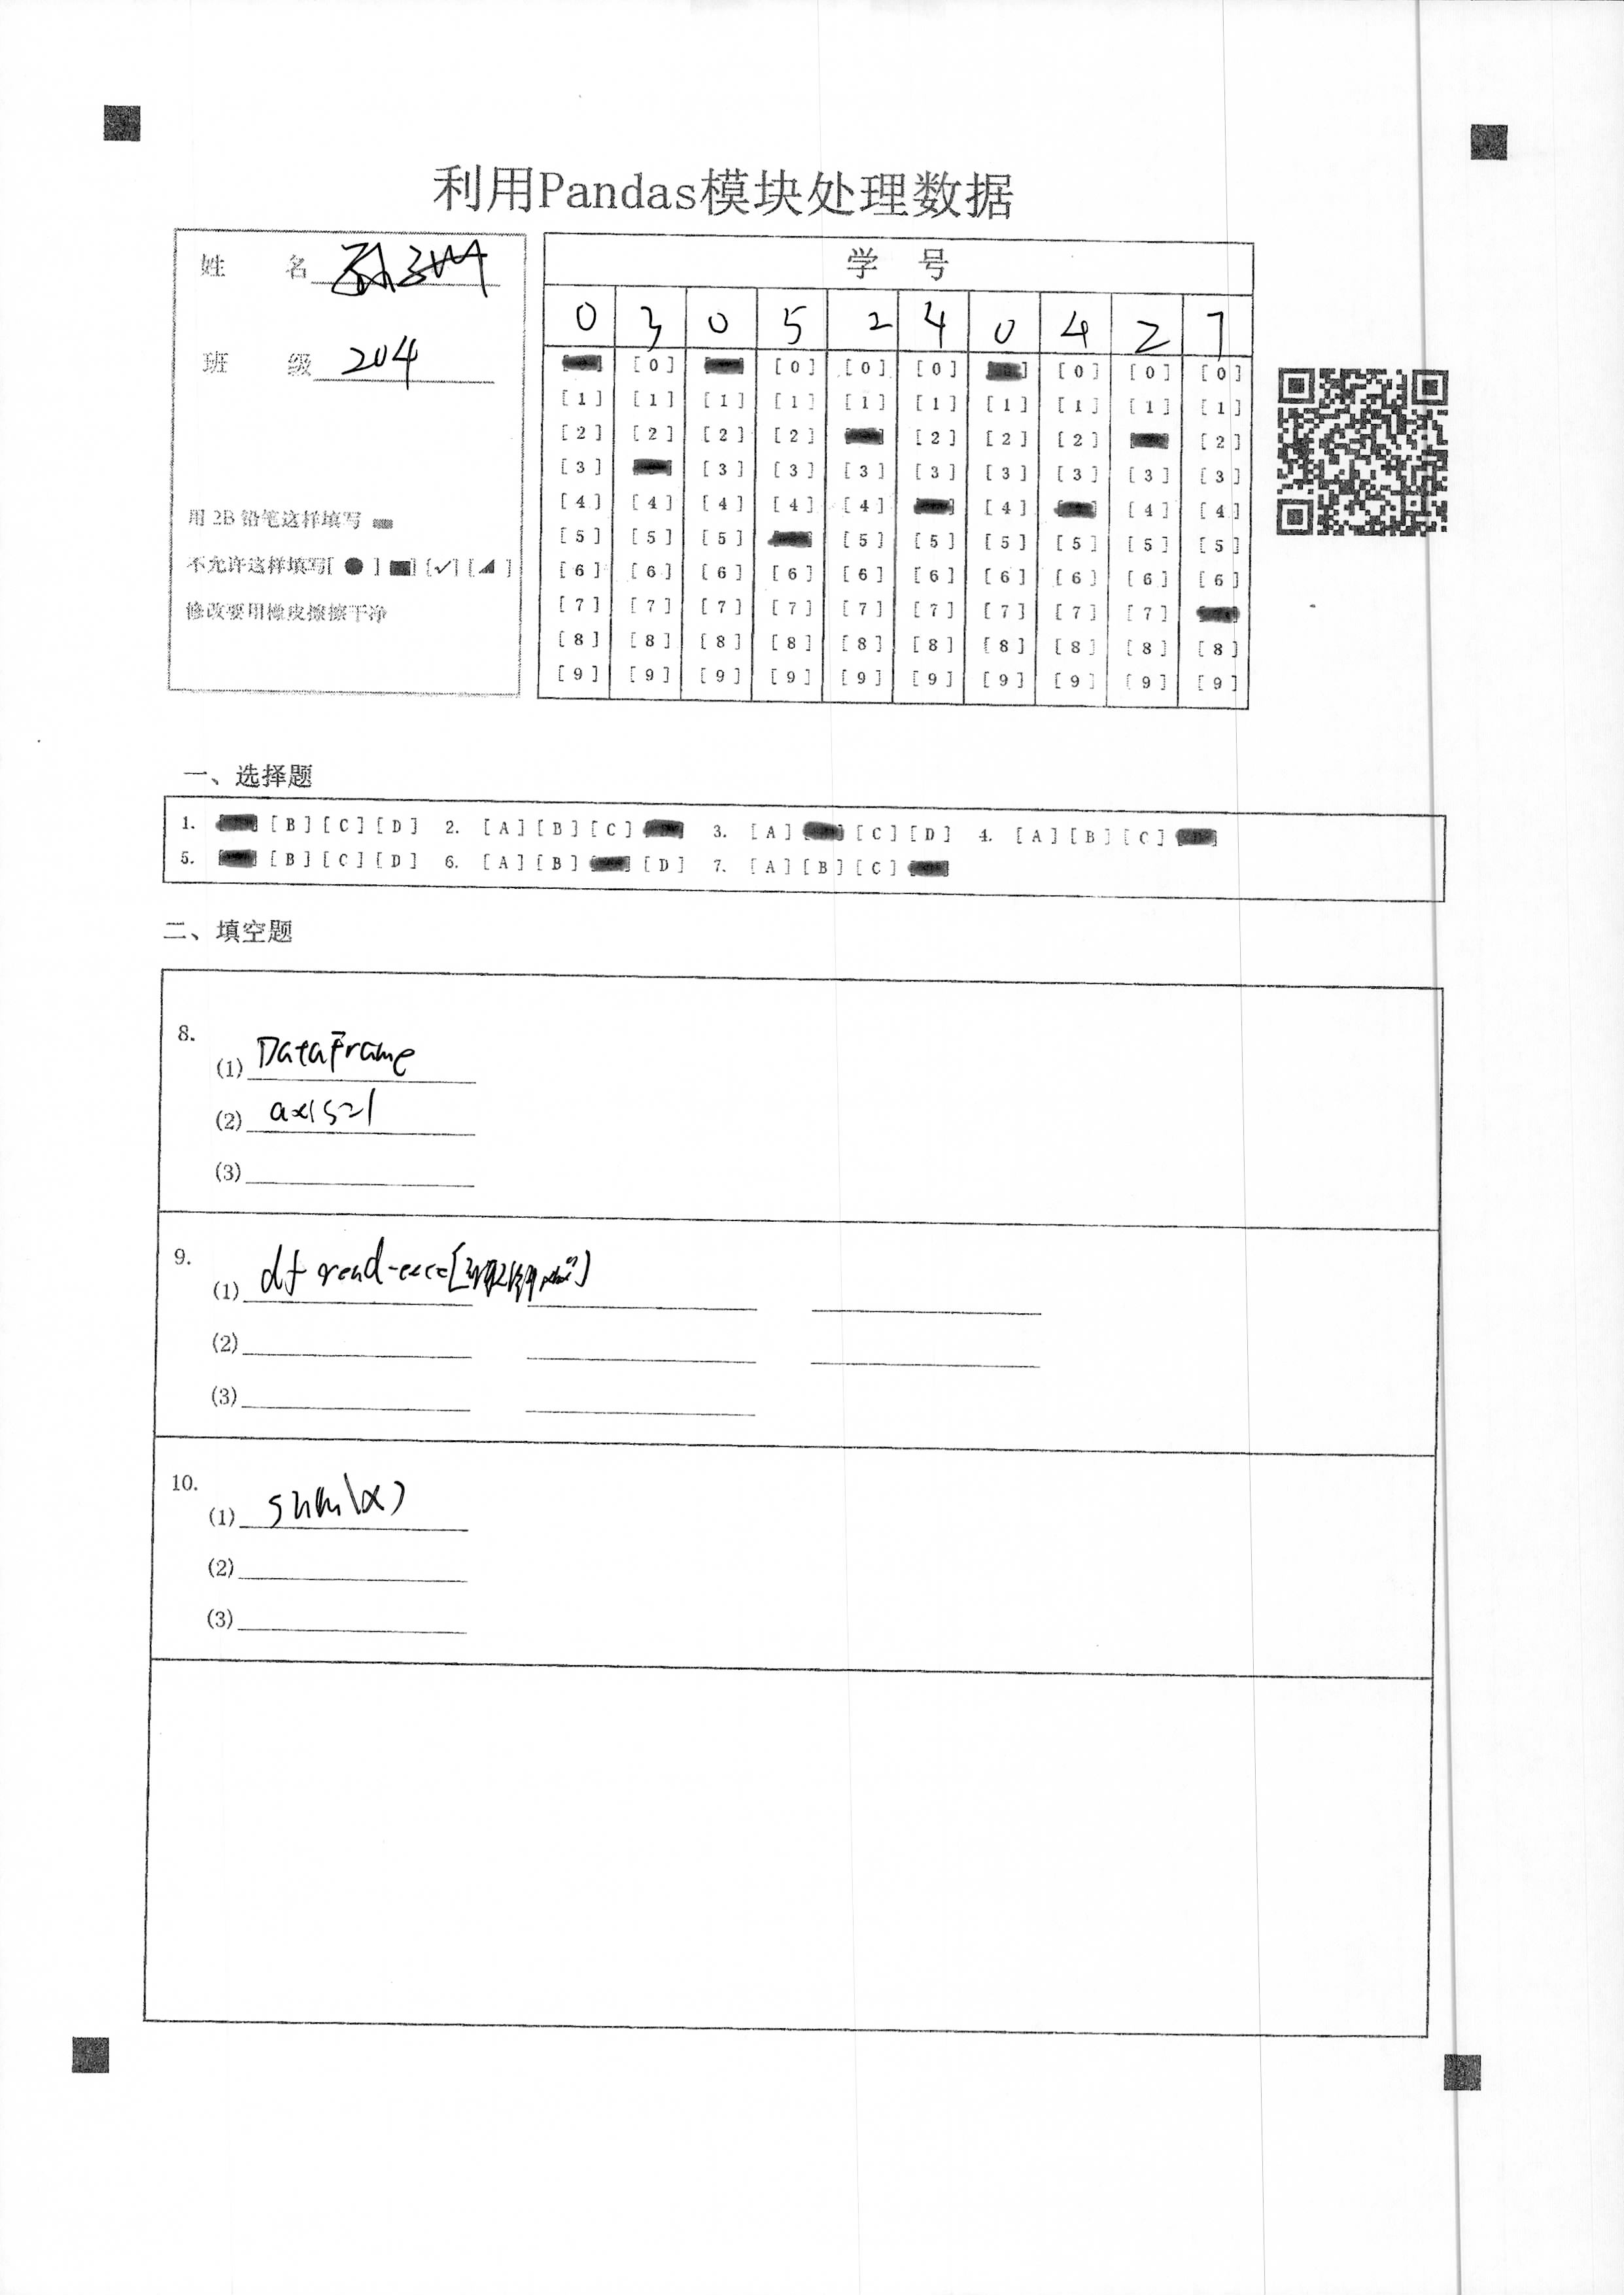 利用Pandas模块处理数据
姓 名
班 级 204
用 2B 铅笔这样填写
不允许这样填写[ ● ] [■] [✓] [◢ ]
修改要用橡皮擦擦干净
学 号
0 3 0 5 2 4 0 4 2 7
[0] [0] [0] [0] [0] [0] [0]
[1] [1] [1] [1] [1] [1] [1] [1] [1] [1]
[2] [2] [2] [2] [2] [2] [2] [2]
[3] [3] [3] [3] [3] [3] [3] [3] [3]
[4] [4] [4] [4] [4] [4] [4] [4]
[5] [5] [5] [5] [5] [5] [5] [5] [5]
[6] [6] [6] [6] [6] [6] [6] [6] [6] [6]
[7] [7] [7] [7] [7] [7] [7] [7] [7]
[8] [8] [8] [8] [8] [8] [8] [8] [8] [8]
[9] [9] [9] [9] [9] [9] [9] [9] [9] [9]
一、选择题
1. [B] [C] [D] 2. [A] [B] [C] 3. [A] [C] [D] 4. [A] [B] [C]
5. [B] [C] [D] 6. [A] [B] [D] 7. [A] [B] [C]
二、填空题
8.
(1) DataFrame
(2) axis=1
(3)
9.
(1) df
(2)
(3)
10.
(1) sum(x)
(2)
(3)